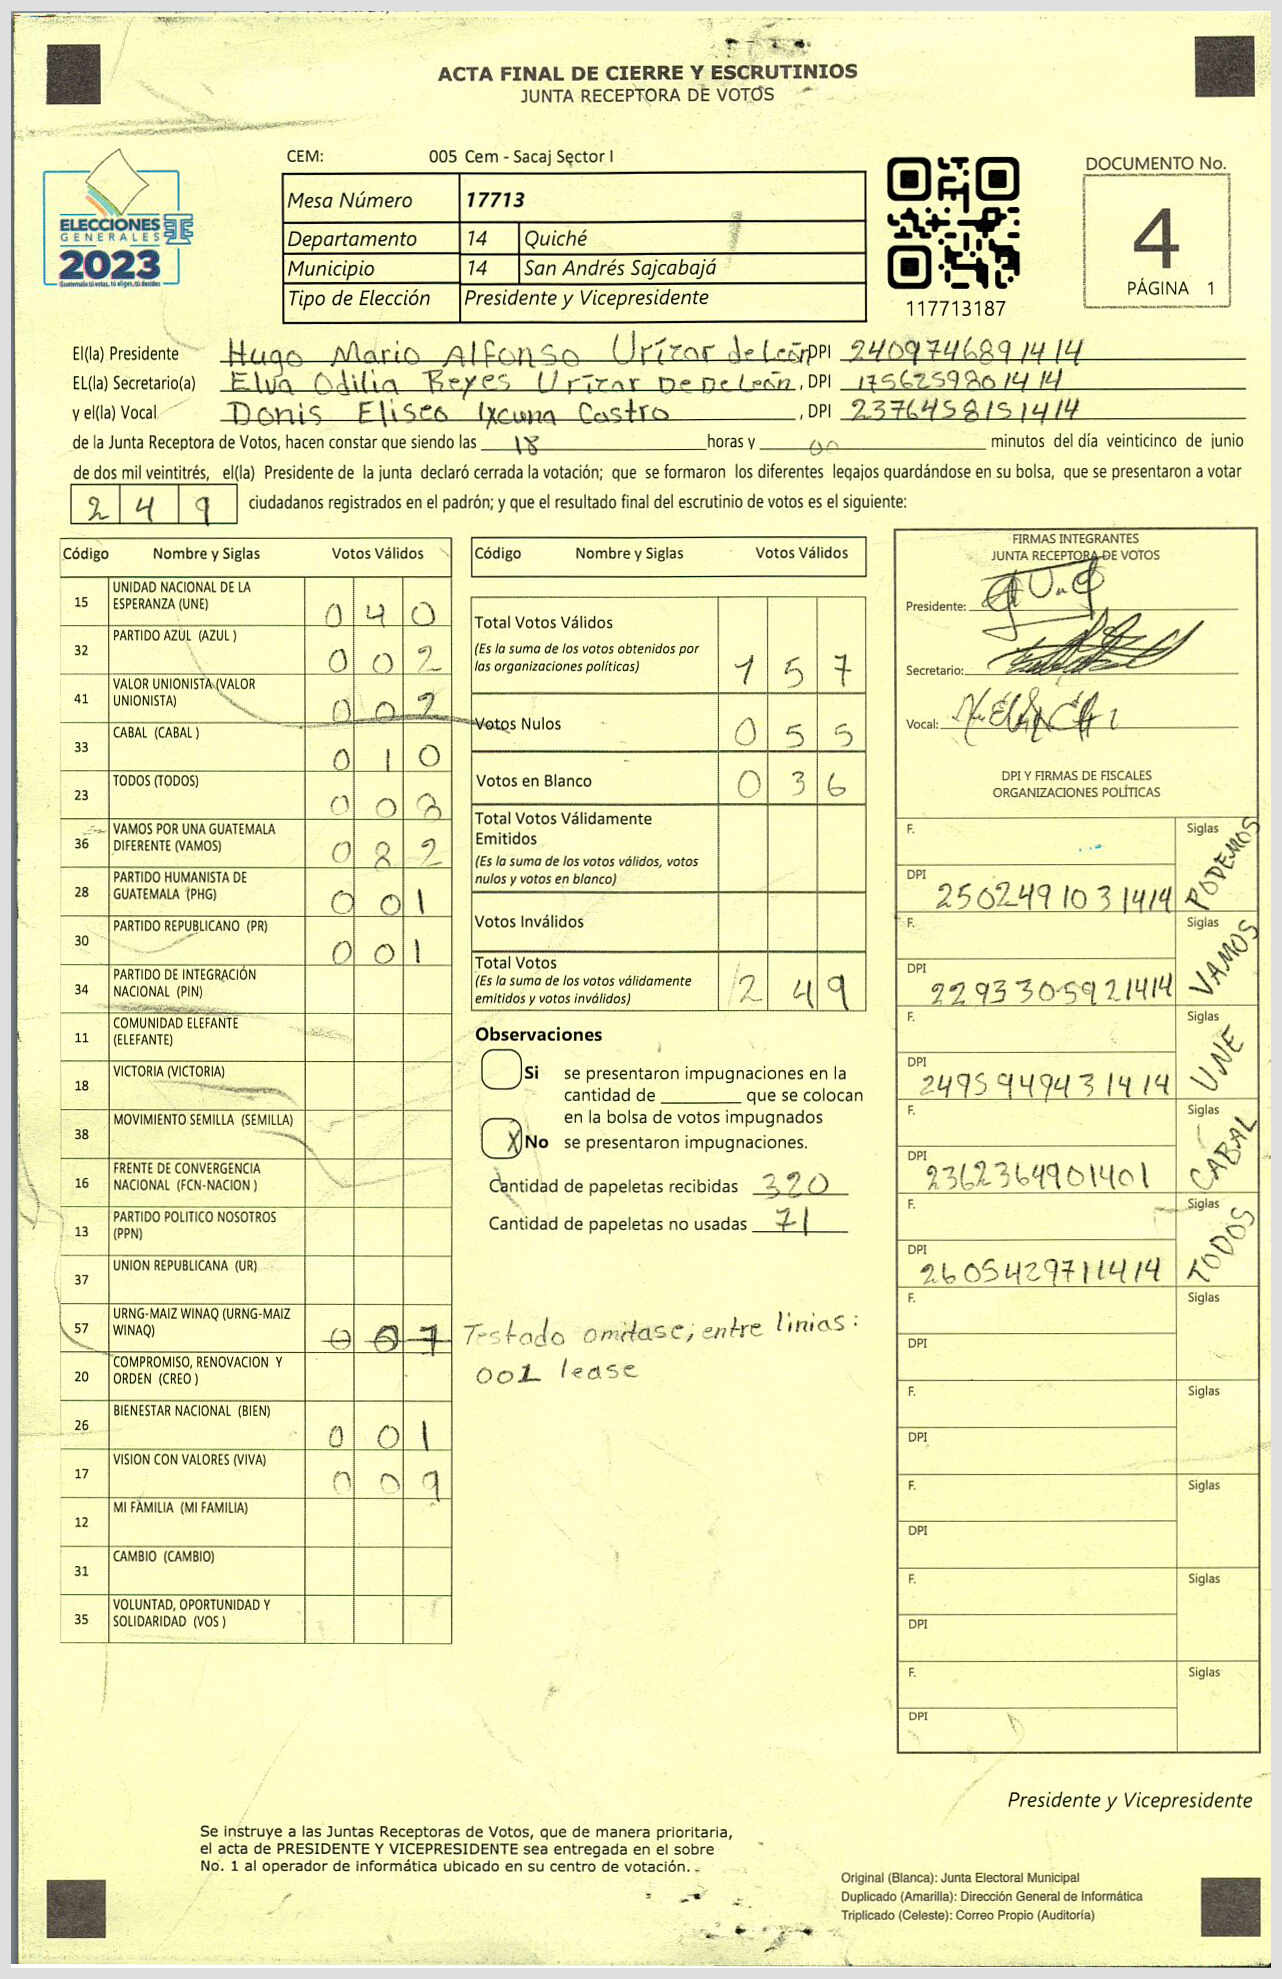 ACTA FINAL DE CIERRE Y ESCRUTINIOS
JUNTA RECEPTORA DE VOTOS
CEM: 005 Cem - Sacaj Sector I
ELECCIONES
GENERALES
2023
Guatemala tú votas, tú eliges, tú decides
Mesa Número 17713
Departamento 14 Quiché
Municipio 14 San Andrés Sajcabajá
Tipo de Elección Presidente y Vicepresidente
117713187
DOCUMENTO No.
4
PÁGINA 1
El(la) Presidente Hugo Mario Alfonso Urízar de León DPI 2409746891414
EL(la) Secretario(a) Elva Odilia Reyes Urízar De De León, DPI 1756259801414
y el(la) Vocal Donis Eliseo Ixcuna Castro, DPI 2376458151414
de la Junta Receptora de Votos, hacen constar que siendo las 18 horas y 00 minutos del día veinticinco de junio
de dos mil veintitrés, el(la) Presidente de la junta declaró cerrada la votación; que se formaron los diferentes legajos quardándose en su bolsa, que se presentaron a votar
249 ciudadanos registrados en el padrón; y que el resultado final del escrutinio de votos es el siguiente:
Código Nombre y Siglas Votos Válidos
15 UNIDAD NACIONAL DE LA ESPERANZA (UNE) 040
32 PARTIDO AZUL (AZUL ) 002
41 VALOR UNIONISTA (VALOR UNIONISTA) 002
33 CABAL (CABAL ) 010
23 TODOS (TODOS) 008
36 VAMOS POR UNA GUATEMALA DIFERENTE (VAMOS) 082
28 PARTIDO HUMANISTA DE GUATEMALA (PHG) 001
30 PARTIDO REPUBLICANO (PR) 001
34 PARTIDO DE INTEGRACIÓN NACIONAL (PIN)
11 COMUNIDAD ELEFANTE (ELEFANTE)
18 VICTORIA (VICTORIA)
38 MOVIMIENTO SEMILLA (SEMILLA)
16 FRENTE DE CONVERGENCIA NACIONAL (FCN-NACION )
13 PARTIDO POLITICO NOSOTROS (PPN)
37 UNION REPUBLICANA (UR)
57 URNG-MAIZ WINAQ (URNG-MAIZ WINAQ)
20 COMPROMISO, RENOVACION Y ORDEN (CREO )
26 BIENESTAR NACIONAL (BIEN) 001
17 VISION CON VALORES (VIVA) 009
12 MI FAMILIA (MI FAMILIA)
31 CAMBIO (CAMBIO)
35 VOLUNTAD, OPORTUNIDAD Y SOLIDARIDAD (VOS )
Código Nombre y Siglas Votos Válidos
Total Votos Válidos 157
(Es la suma de los votos obtenidos por
las organizaciones políticas)
Votos Nulos 055
Votos en Blanco 036
Total Votos Válidamente
Emitidos
(Es la suma de los votos válidos, votos
nulos y votos en blanco)
Votos Inválidos
Total Votos 249
(Es la suma de los votos válidamente
emitidos y votos inválidos)
Observaciones
Si se presentaron impugnaciones en la
cantidad de ________ que se colocan
en la bolsa de votos impugnados
X No se presentaron impugnaciones.
Cantidad de papeletas recibidas 320
Cantidad de papeletas no usadas 71
Testado omitase, entre linias:
001 lease
FIRMAS INTEGRANTES
JUNTA RECEPTORA DE VOTOS
Presidente:
Secretario:
Vocal:
DPI Y FIRMAS DE FISCALES
ORGANIZACIONES POLÍTICAS
F. Siglas PODEMOS
DPI 2502491031414
F. Siglas VAMOS
DPI 2293305921414
F. Siglas UNE
DPI 2495949431414
F. Siglas CABAL
DPI 2362364901401
F. Siglas TODOS
DPI 2605429711414
F. Siglas
DPI
F. Siglas
DPI
F. Siglas
DPI
F. Siglas
DPI
F. Siglas
DPI
Presidente y Vicepresidente
Se instruye a las Juntas Receptoras de Votos, que de manera prioritaria,
el acta de PRESIDENTE Y VICEPRESIDENTE sea entregada en el sobre
No. 1 al operador de informática ubicado en su centro de votación.
Original (Blanca): Junta Electoral Municipal
Duplicado (Amarilla): Dirección General de Informática
Triplicado (Celeste): Correo Propio (Auditoría)